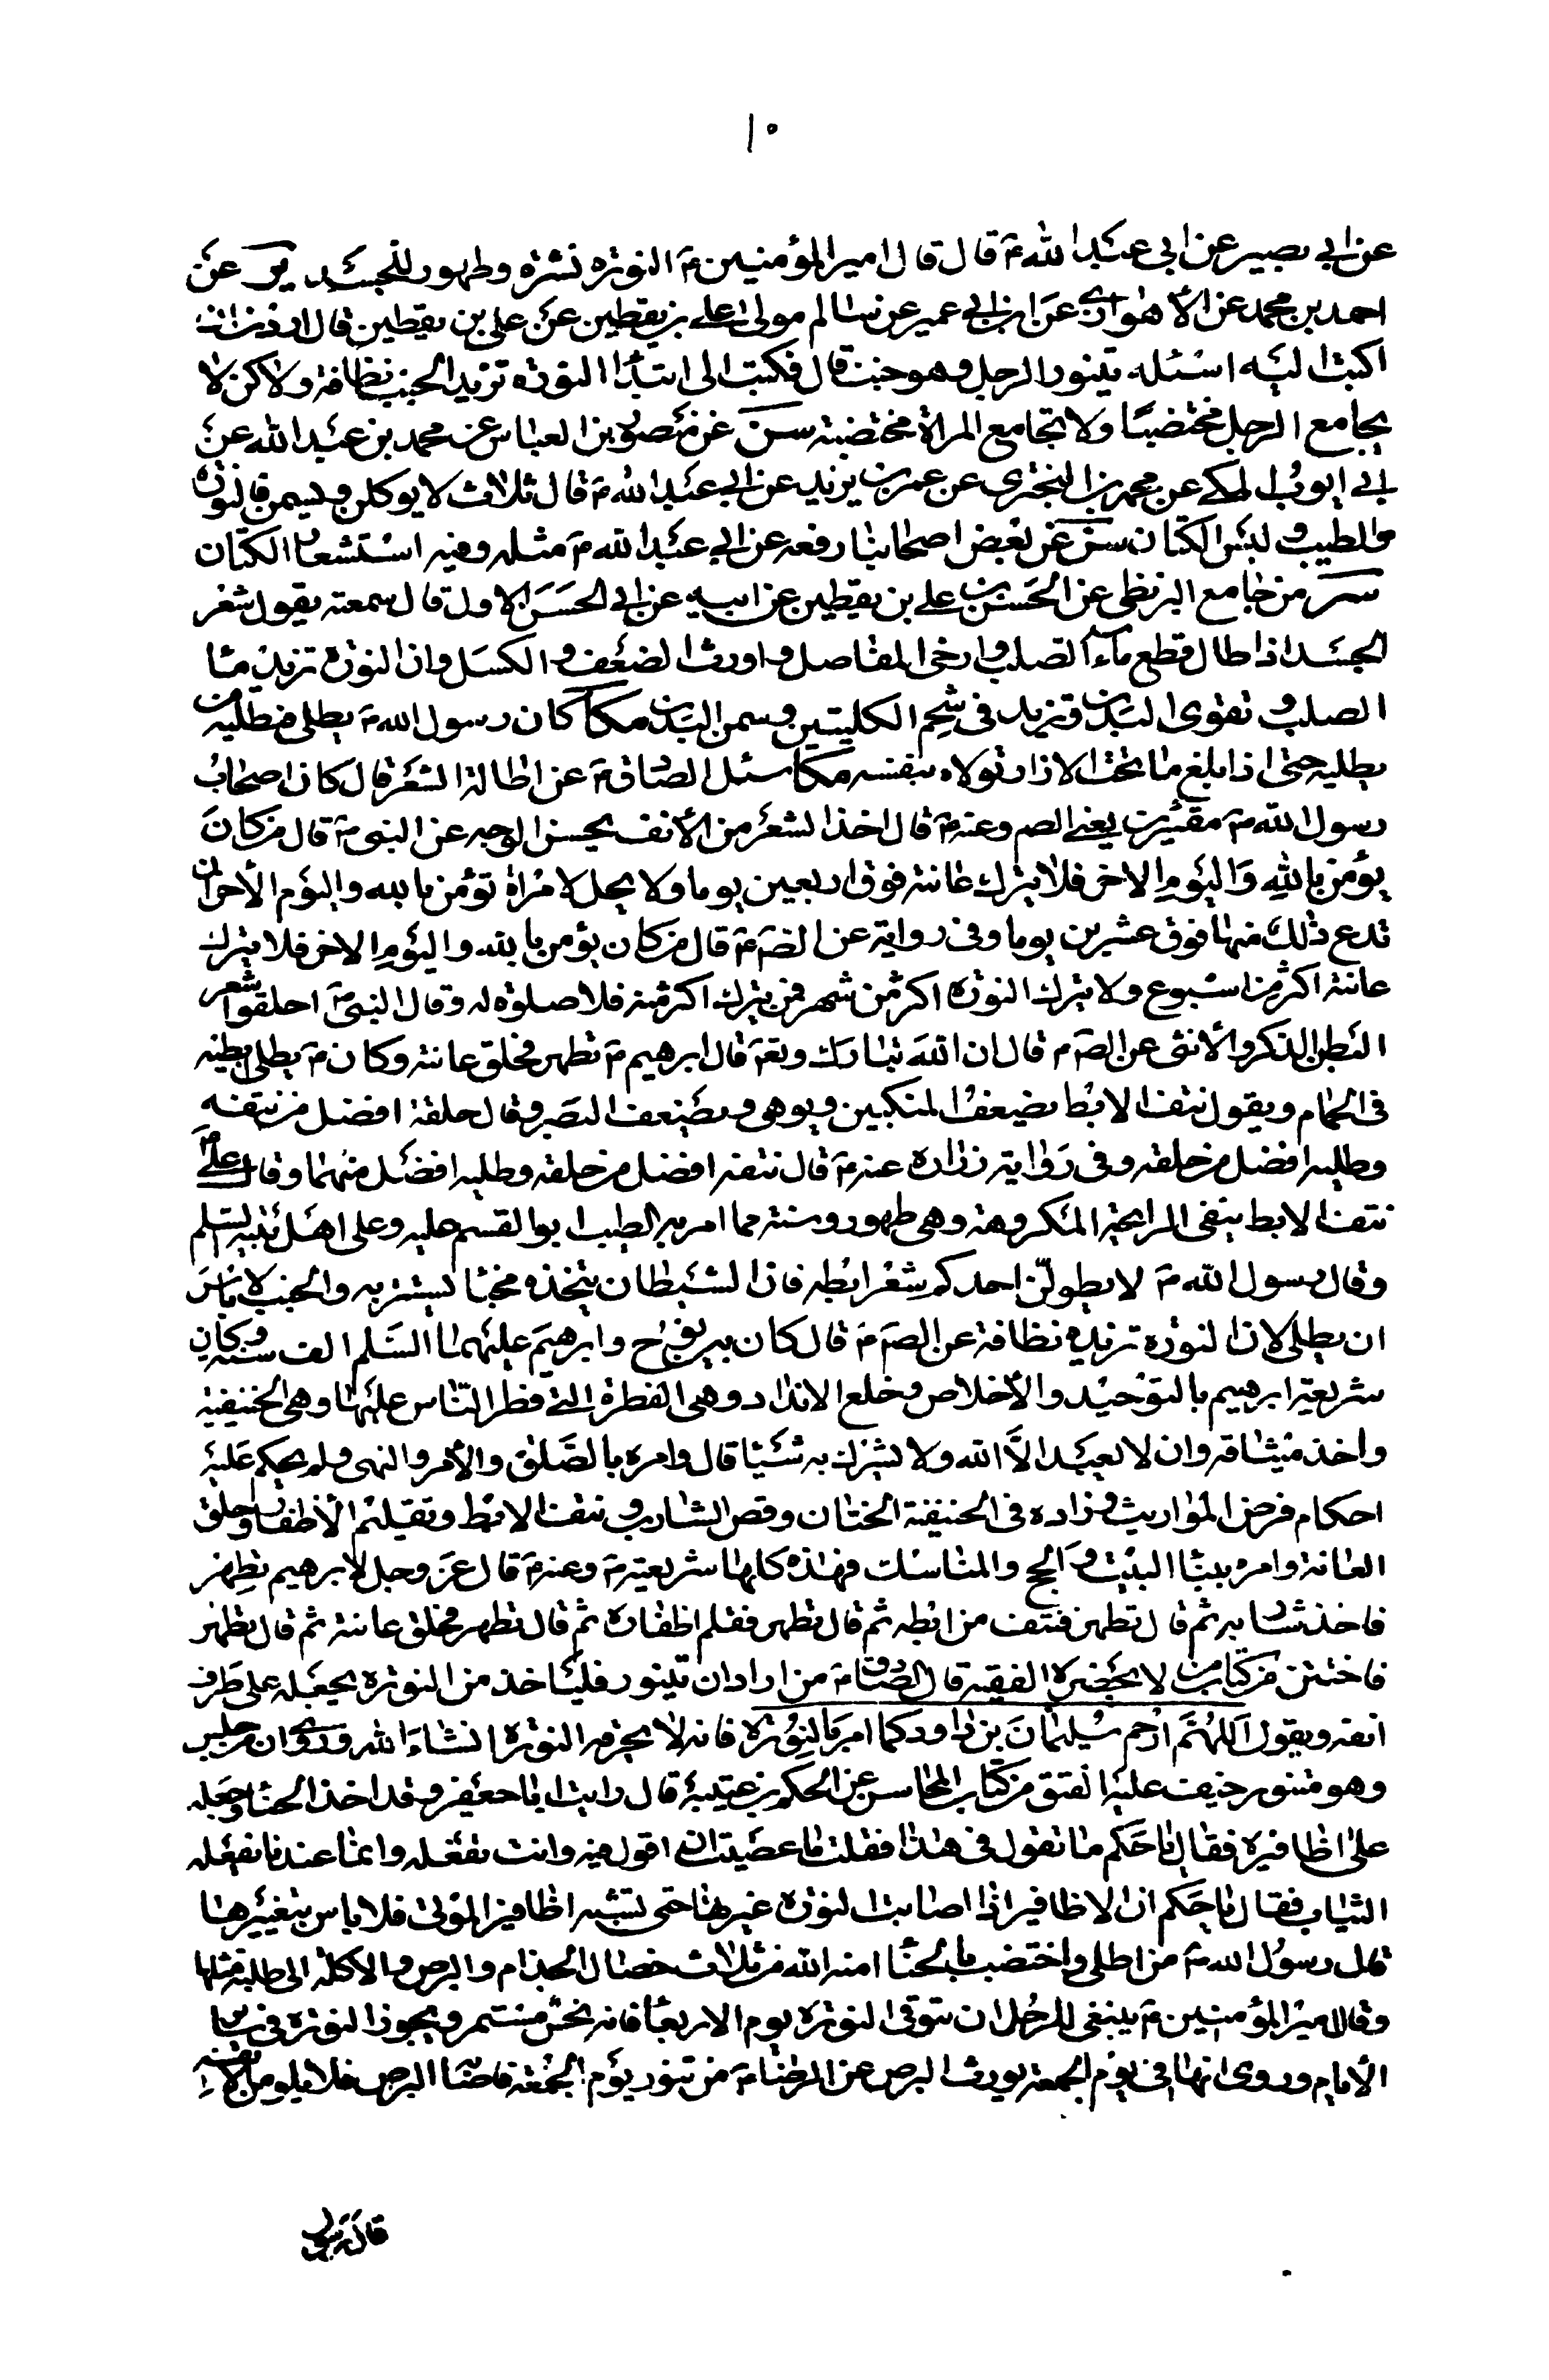 ١٠
عن ابي بصير عن ابي عبد الله ع قال قال امير المؤمنين ع النوره نشره وطهور للجسد ير عن
احمد بن محمد عن الأهوازي عن ابن ابي عمير عن سالم مولى علي بن يقطين عن علي بن يقطين قال اردت ان
اكتب اليه اسئله يتنور الرجل وهو جنب قال فكتب الى ابتدأ النوره تزيد الجنب نظافة ولاكن لا
يجامع الرجل مختضبا ولا تجامع المراة مختضبة سن عن منصور بن العباس عن محمد بن عبد الله عن
ابي ايوب المكي عن محمد بن البختري عن عمر بن يزيد عن ابي عبد الله ع قال ثلاث لا يوكلن ويسمن النوره
والطيب ولبس الكتان سن عن بعض اصحابنا رفعه عن ابي عبد الله ع مثله وفيه استشعار الكتان
سر من جامع البزنطي عن الحسن بن علي بن يقطين عن ابيه عن ابي الحسن الاول قال سمعته يقول شعر
الجسد اذا طال قطع ماء الصلب وارخى المفاصل واورث الضعف والكسل وان النورة تزيد في ماء
الصلب وتقوى البدن وتزيد في شحم الكليتين وسمن البدن مكا كان رسول الله ص يطلى فيطليه من
يطليه حتى اذا بلغ ما تحت الازار تولاه بنفسه مكا سئل الصادق ع عن اطالة الشعر قال كان اصحاب
رسول الله ص مقصرين يعنى الطم وعنه ع قال اخذ الشعر من الأنف يحسن الوجه عن النبي ص قال من كان
يؤمن بالله واليوم الاخر فلا يترك عانته فوق اربعين يوما ولا يحل لامراة تؤمن بالله واليوم الأخر ان
تدع ذلك منها فوق عشرين يوما وفى رواية عن الصم ع قال من كان يؤمن بالله واليوم الاخر فلا يترك
عانته اكثر من اسبوع ولا يترك النوره اكثر من شهر فمن يترك اكثر منه فلا صلوة له وقال النبي ص احلقوا شعر
البطن الذكر والأنثى عن الصم ع قال ان الله تبارك وتعم قال ابرهيم ع تطهر فحلق عانته وكان ع يطلى ابطيه
في الحمام ويقول نتف الابط يضعف المنكبين ويوهى ويضعف البصر وقال حلقه افضل من نتفه
وطليه افضل من حلقه وفى رواية زراره عنه ع قال نتفه افضل من حلقه وطليه افضل منهما وقال علي ع
نتف الابط ينفى الرايحة المكروهة وهى طهور وسنة مما امر به الطيب ابو القسم عليه وعلى اهل بيته السلم
وقال رسول الله ص لا يطولن احدكم شعر ابطه فان الشيطان يتخذه مخبئا يستتر به والجنب لا باس
ان يطلى لان النوره تزيده نظافة عن الصم ع قال كان بين نوح وابرهيم عليهما السلم الف سنة وكان
شريعة ابرهيم بالتوحيد والأخلاص وخلع الانداد وهى الفطرة التي فطر الناس عليها وهي الحنيفية
واخذ ميثاقه وان لا يعبد الا الله ولا يشرك به شيئا قال وامره بالصلوة والأمر والنهى ولم يحكم عليه
احكام فرض المواريث وزاده في الحنيفة الختان وقص الشارب ونتف الابط وتقليم الأظفار وحلق
العانة وامره ببنا البيت والحج والمناسك فهذه كلها شريعته ع وعنه ع قال عز وجل لابرهيم تطهر
فاخذ شاربه ثم قال تطهر فنتف من ابطه ثم قال تطهر فقلم اظفاره ثم قال تطهر فحلق عانته ثم قال تطهر
فاختتن من كتاب من لا يحضره الفقيه قال الصادق ع من اراد ان يتنور فلياخذ من النوره يجعله على طرف
انفه ويقول اللهم ارحم سليمان بن داود كما امر بالنوره فانه لا يحرقه النورة انشاء الله وروى ان من جلس
وهو متنور خيف عليه الفتق من كتاب المحاسن عن الحكم بن عتيبة قال رايت ابا جعفر وقد اخذ الحنا وجعله
على اظافيره فقال يا حكم ما تقول في هذا فقلت ما عصيت ان اقول فيه وانت تفعله وانما عندنا يفعله
الشباب فقال يا حكم ان الاظافير اذا اصابت النوره غيرها حتى تشبه اظافيز الموتى فلا باس بتغييرها
قال رسول الله ص من اطلى واختضب بالحنا امنه الله من ثلاث خصال الجذام والبرص والاكلة الى طلية مثلها
وقال امير المؤمنين ع ينبغى للرجل ان يتوقى النوره يوم الاربعا فانه نحس مستمر ويجوز النوره في ساير
الأيام وروى انها في يوم الجمعه يورث البرص عن الرضا ع من تنور يوم الجمعه فاصابه البرص فلا يلومن الا نفسه
قال رسول